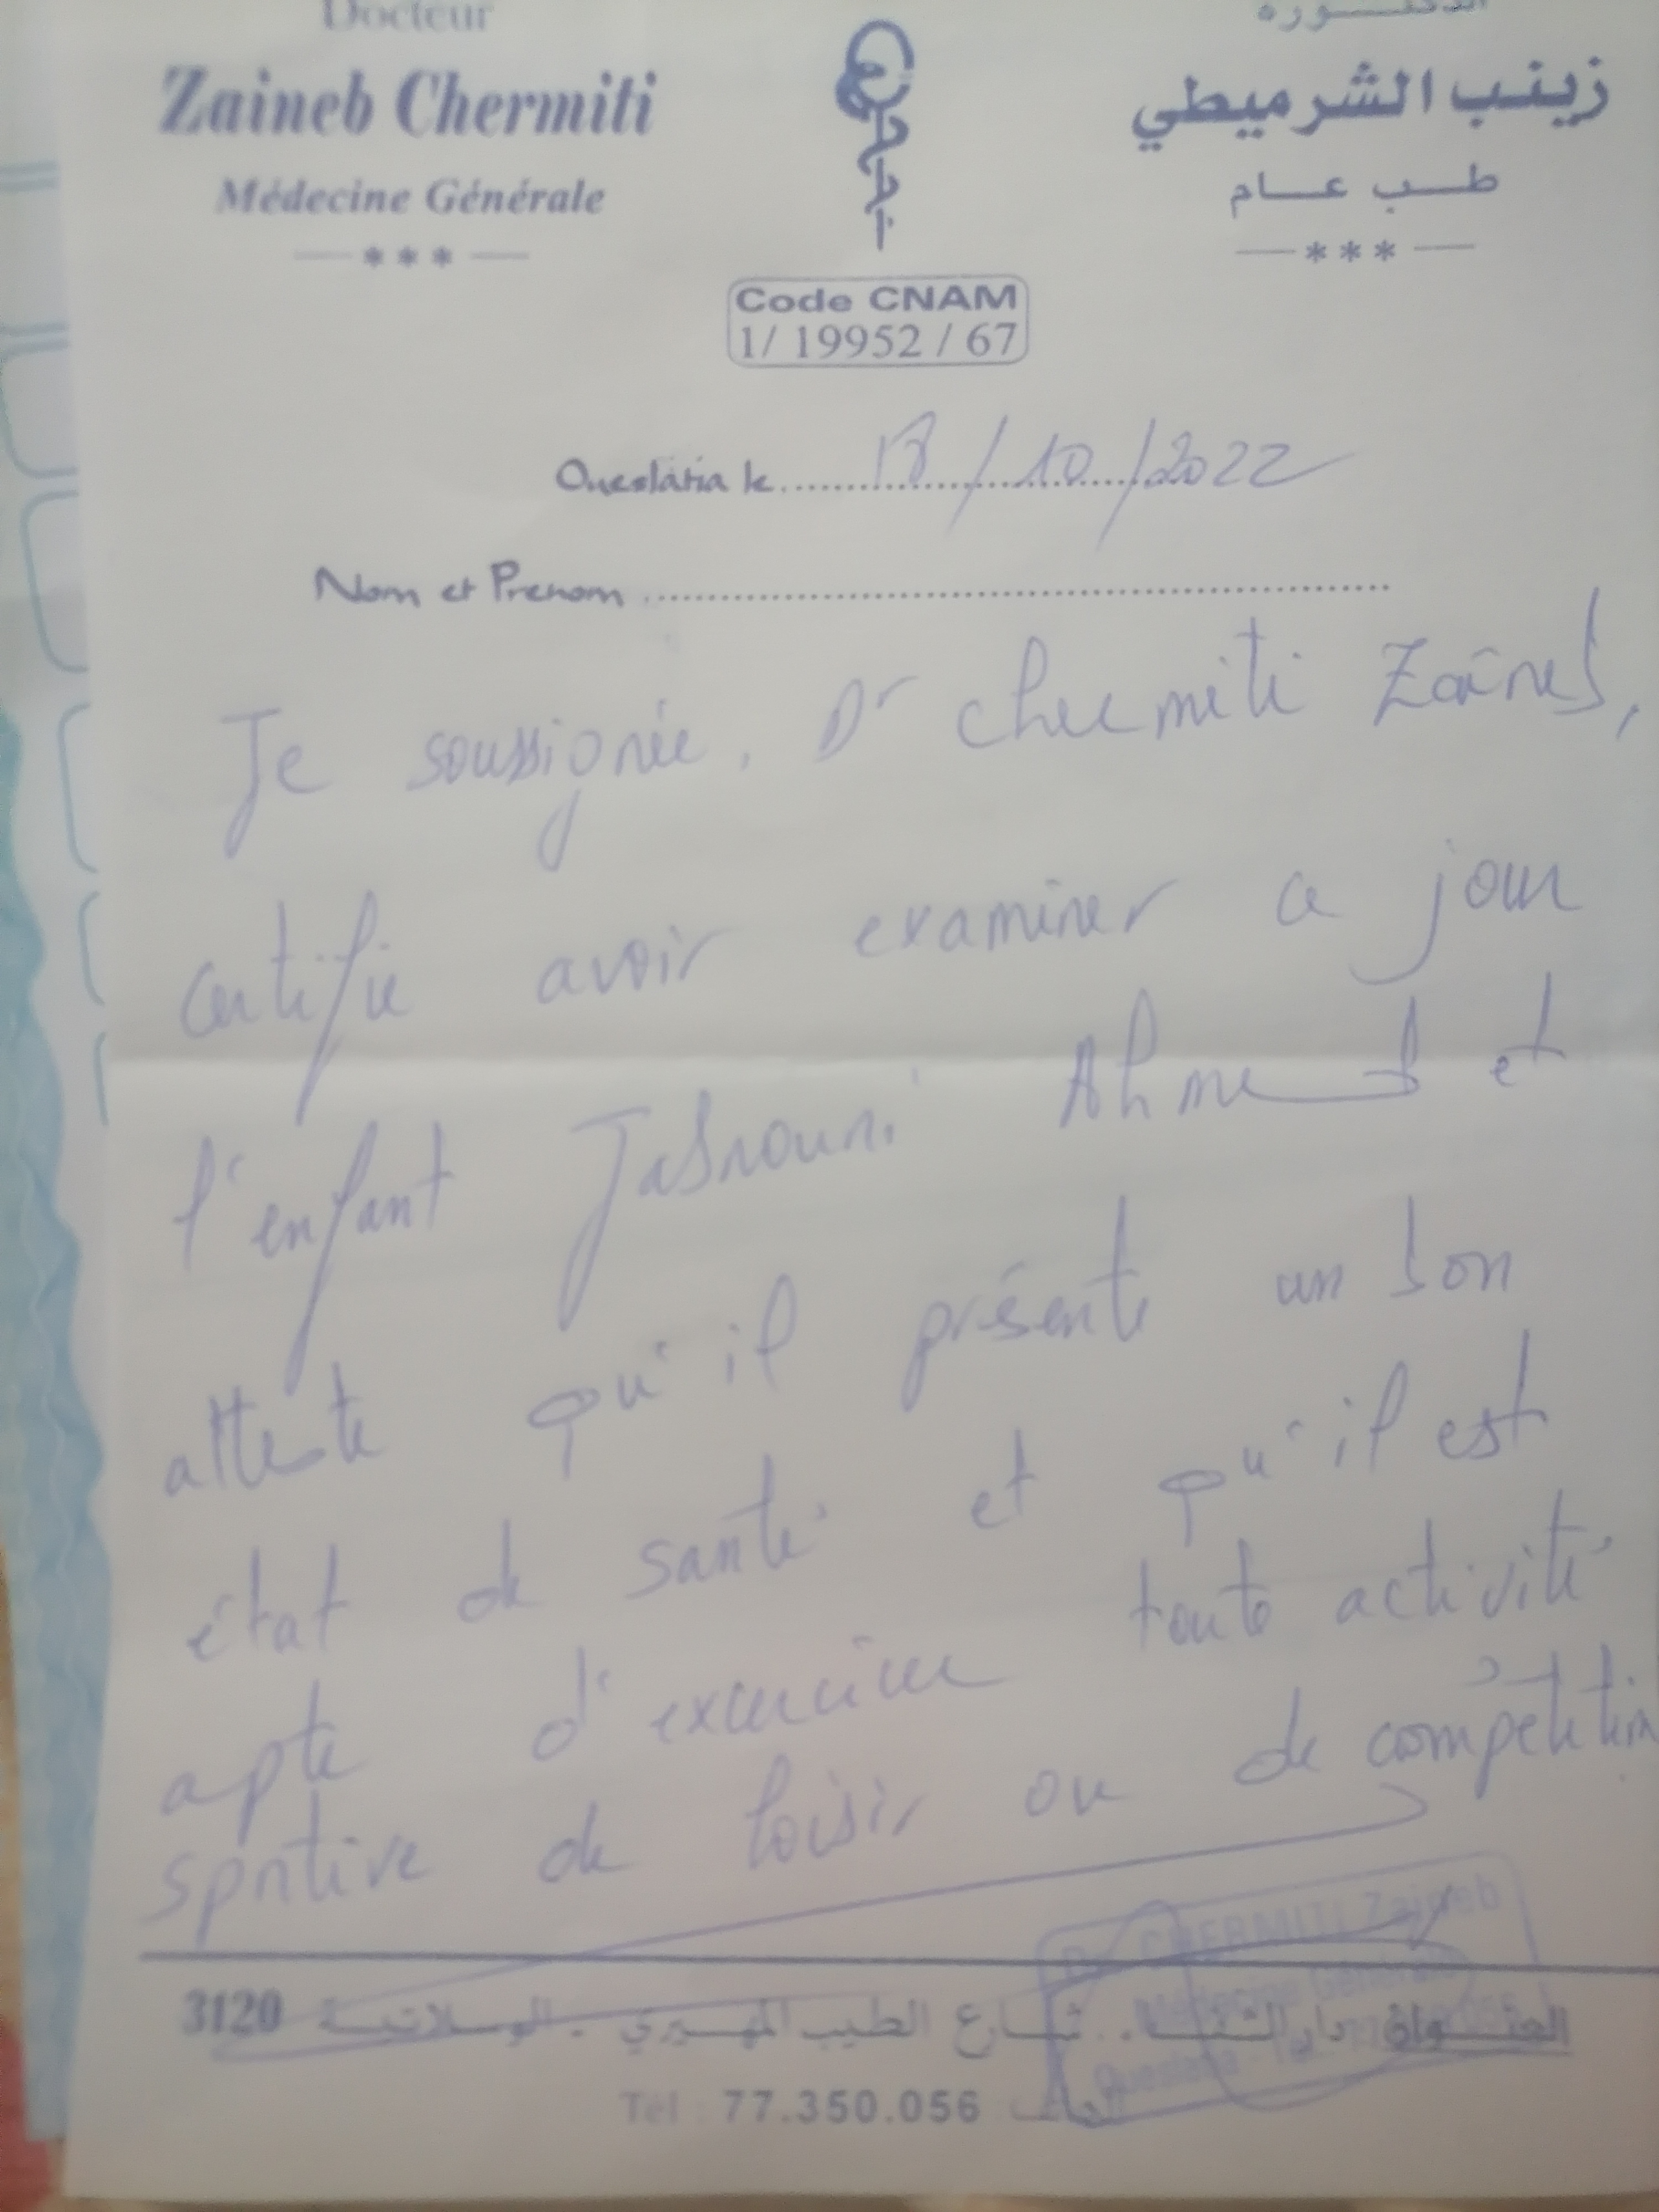 Docteur
Zaineb Chermiti
Médecine Générale
***
الدكتورة
زينب الشرميطي
طب عام
***
Code CNAM
1/ 19952 / 67
Oueslatia le 18/10/2022
Nom et Prenom
Je soussignée, Dr Chermiti Zaîneb,
certifie avoir examiner ce jour
l'enfant Jabnouni Ahmed et
atteste qu'il présente un bon
état de santé et qu'il est
apte d'exercicer toute activité
sportive de loisir ou de compétition
Dr CHERMITI Zaineb
Médecine Générale
Oueslatia - Tel
العنوان دار الشفاء . شارع الطيب المهيري - الوسلاتية 3120
Tél : 77.350.056 الهاتف